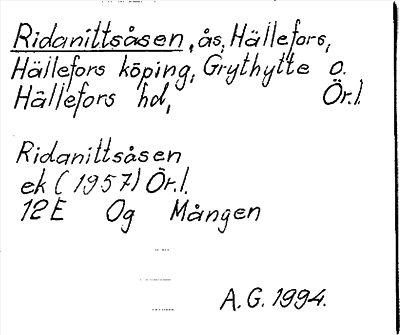 Ridanittsåsen, ås, Hällefors,
Hällefors köping, Grythytte o.
Hällefors hd, Ör.l.
Ridanittsåsen
ek (1957) Ör.l.
12E Og Mången
A.G. 1994.